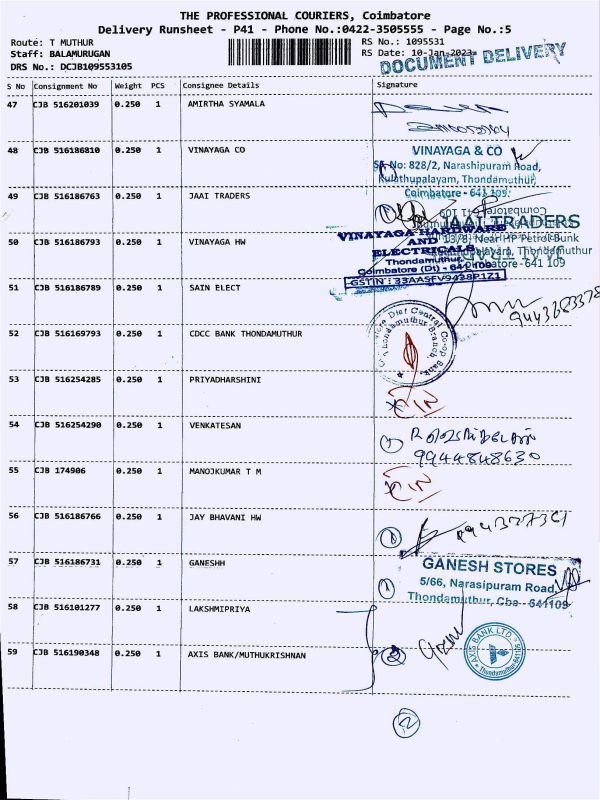 THE PROFESSIONAL COURIERS, Coimbatore
Delivery Runsheet - P41 - Phone No.:0422-3505555 - Page No.:5
Route: T MUTHUR
Staff: BALAMURUGAN
DRS No.: DCJB109553105
RS No.: 1095531
RS Date: 10-Jan-2023
DOCUMENT DELIVERY
S No Consignment No Weight PCS Consignee Details Signature
47 CJB 516201039 0.250 1 AMIRTHA SYAMALA
48 CJB 516186810 0.250 1 VINAYAGA CO
VINAYAGA & CO
SA No: 828/2, Narashipuram Road,
Kulathupalayam, Thondamuthur,
Coimbatore - 641 109.
49 CJB 516186763 0.250 1 JAAI TRADERS
JAAI TRADERS
13/8, Near HP Petrol Bunk
Thondamuthur
Coimbatore - 641 109
50 CJB 516186793 0.250 1 VINAYAGA HW
VINAYAGA HARDWARE
AND
ELECTRICALS
Thondamuthur,
Coimbatore (Dt) - 641 109
GSTIN : 33AASFV9428P1Z1
51 CJB 516186789 0.250 1 SAIN ELECT
52 CJB 516169793 0.250 1 CDCC BANK THONDAMUTHUR
Dist Central Co-op Bank
Thondamuthur Branch
53 CJB 516254285 0.250 1 PRIYADHARSHINI
54 CJB 516254290 0.250 1 VENKATESAN
9944848630
55 CJB 174906 0.250 1 MANOJKUMAR T M
56 CJB 516186766 0.250 1 JAY BHAVANI HW
57 CJB 516186731 0.250 1 GANESHH
GANESH STORES
5/66, Narasipuram Road,
Thondamuthur, Cbe - 641109
58 CJB 516101277 0.250 1 LAKSHMIPRIYA
59 CJB 516190348 0.250 1 AXIS BANK/MUTHUKRISHNAN
AXIS BANK LTD.
Thondamuthur
2